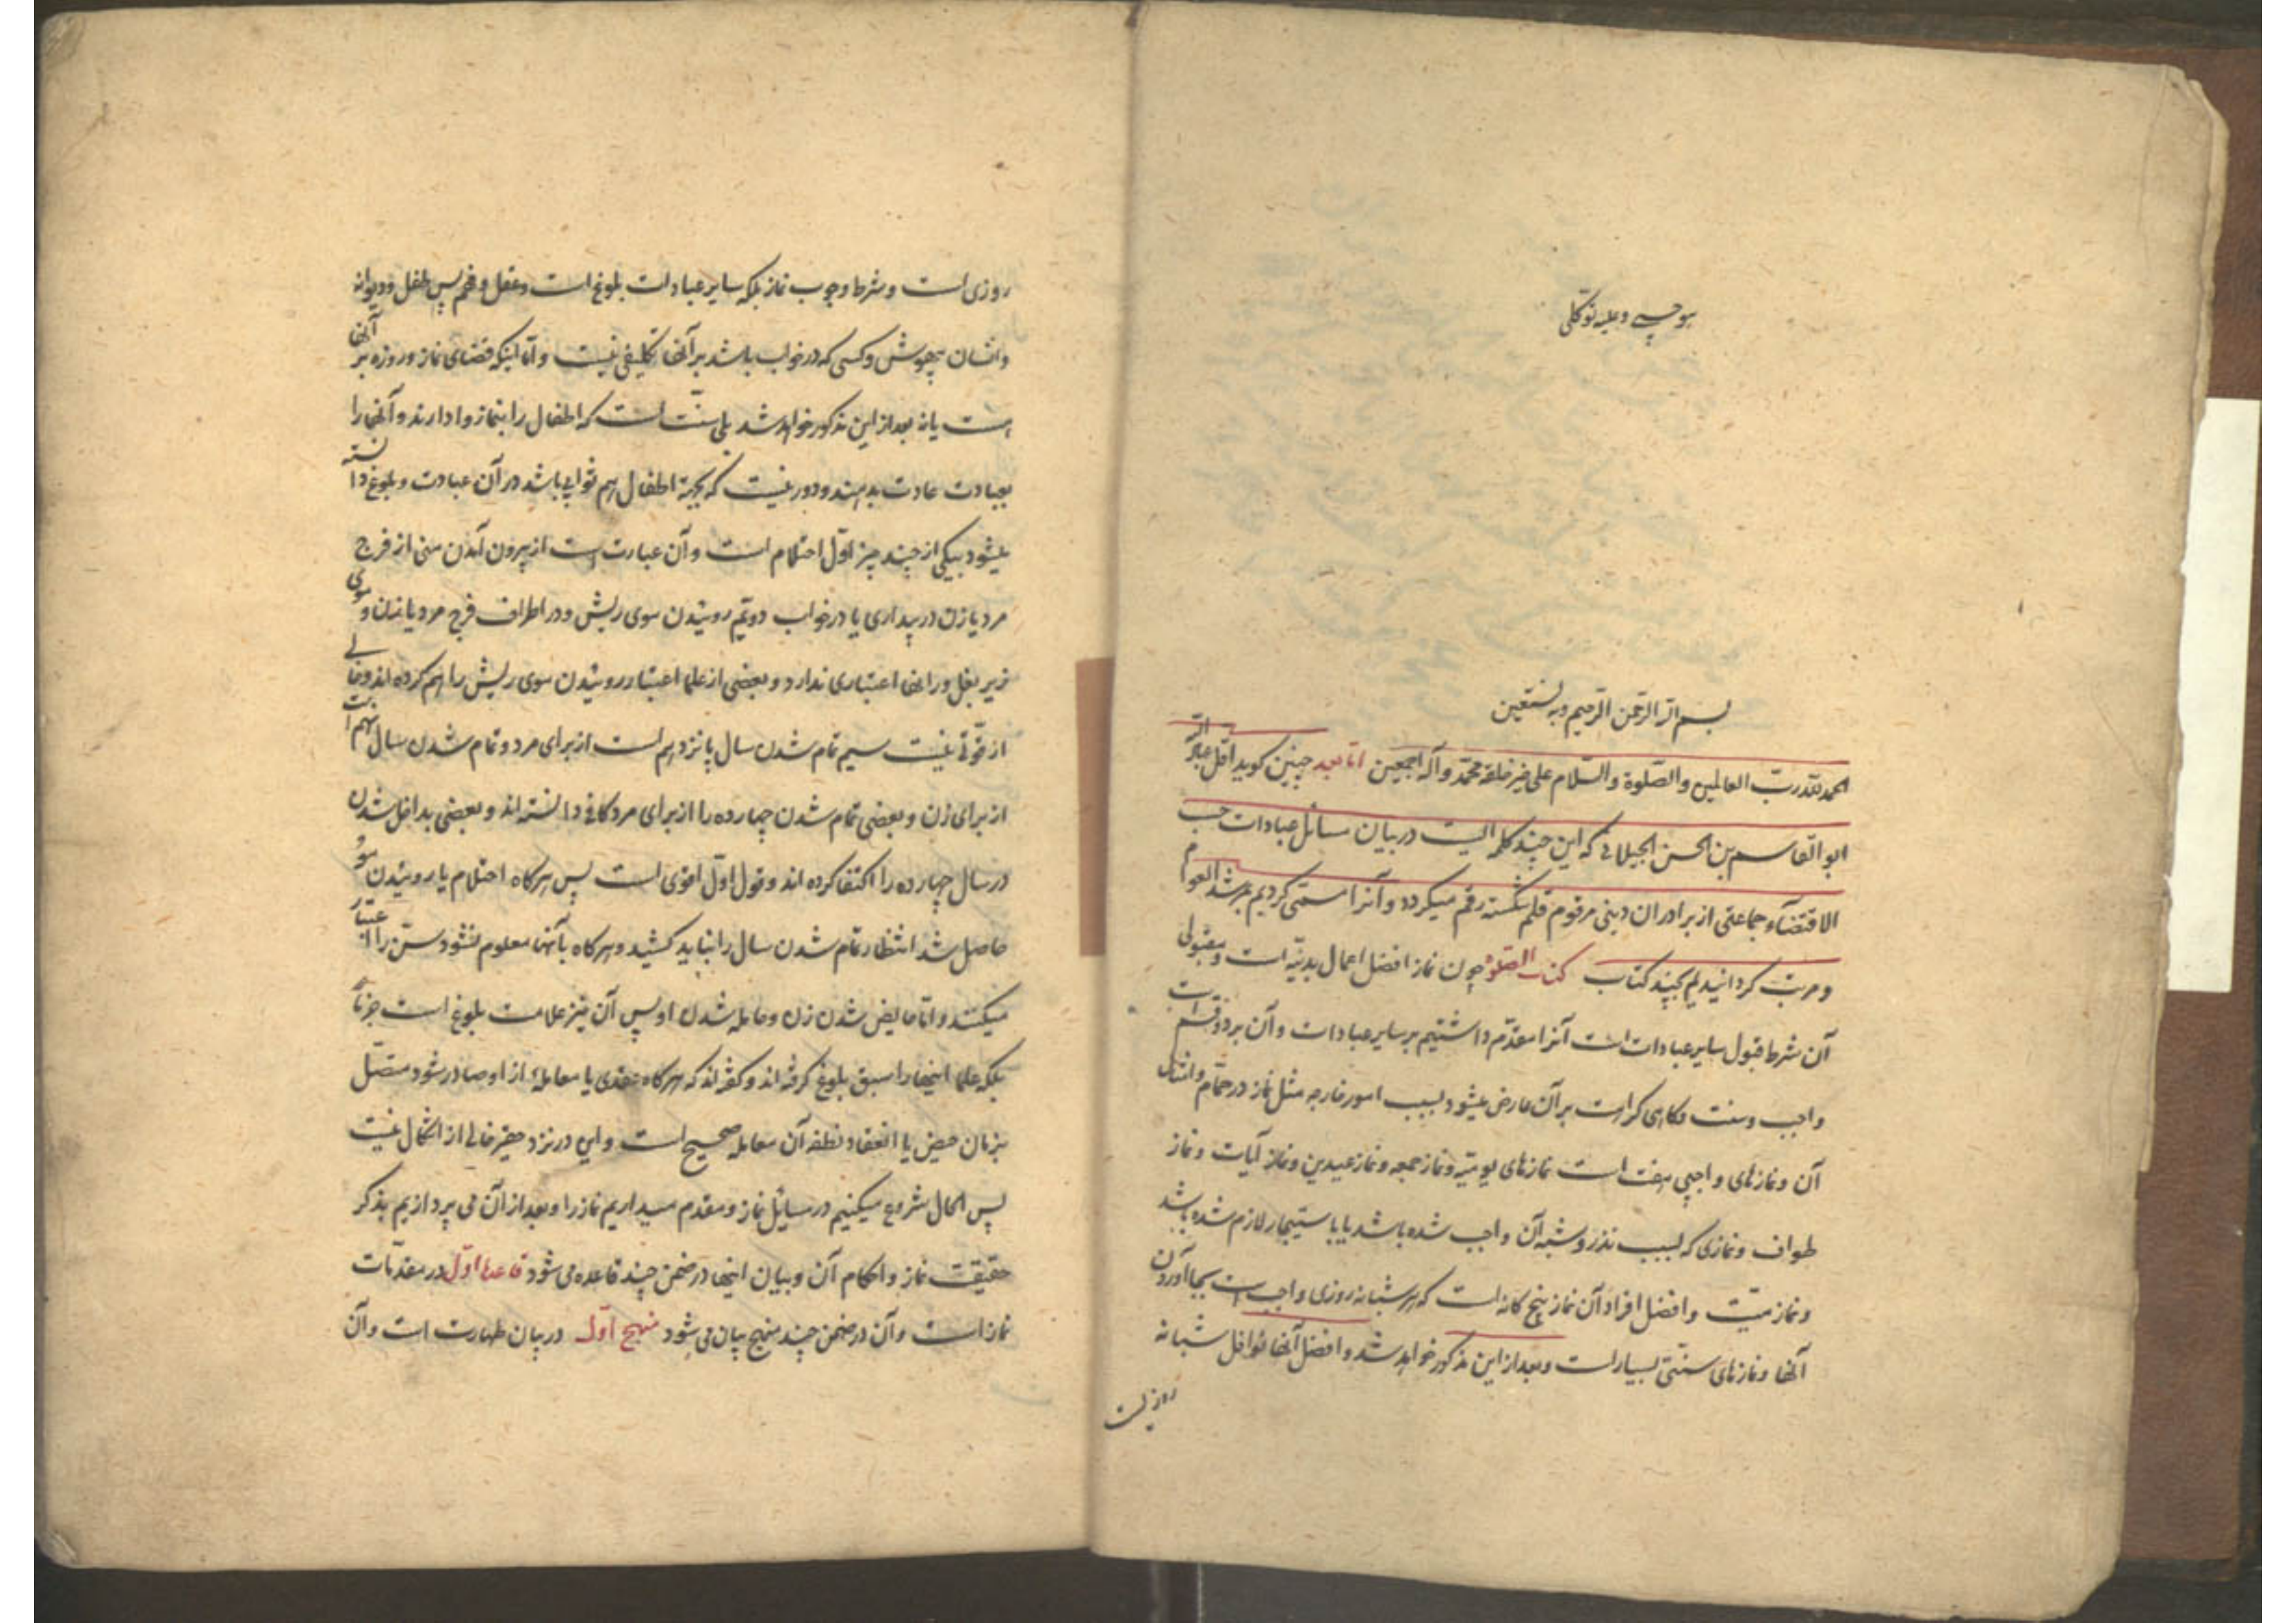 هو حسبی و علیه توکلی
بسم الله الرحمن الرحیم و به نستعین
الحمد لله رب العالمین والصلوة والسلام علی خیر خلقه محمد وآله اجمعین اما بعد چنین کوید اقل عباد الله
ابو القاسم بن الحسن الجیلانی که این چند کلمه ایست در بیان مسائل عبادات حسب
الاقتضآء جماعتی از برادران دینی مرقوم قلم شکسته رقم میکردد و آنرا مسمی کردیم بمرشد العوام
و مرتب کردانیدیم بچند کتاب کتاب الصلوة چون نماز افضل اعمال بدنیه است و مقبولی
آن شرط قبول سایر عبادات است آنرا مقدم داشتیم بر سایر عبادات و آن بر دو قسم است
واجب و سنت و کاهی کراهت بر آن عارض میشود بسبب امور خارجه مثل نماز در حمام و امثال
آن و نمازهای واجبی هفت است نمازهای یومیه و نماز جمعه و نماز عیدین و نماز آیات و نماز
طواف و نمازی که بسبب نذر و شبه آن واجب شده باشد یا باستیجار لازم شده باشد
و نماز میت و افضل افراد آن نماز پنج کانه است که هر شبانه روزی واجب است بجا آوردن
آنها و نمازهای سنتی بسیار است و بعد از این مذکور خواهد شد و افضل آنها نوافل شبانه
روزیست
روزی است و شرط وجوب نماز بلکه سایر عبادات بلوغ است و عقل و فهم پس طفل و دیوانه
و انسان بیهوش و کسی که در خواب باشد بر آنها تکلیفی نیست و اما اینکه قضای نماز و روزه بر آنها
هست یا نه بعد از این مذکور خواهد شد بلی سنت است که اطفال را بنماز وا دارند و آنها را
بعبادت عادت بدهند و دور نیست که بجهة اطفال هم ثوابی باشد در آن عبادت و بلوغ دانسته
میشود بیکی از چند چیز اول احتلام است و آن عبارت است از بیرون آمدن منی از فرج
مرد یا زن در بیداری یا در خواب دویم روئیدن موی ریش و در اطراف فرج مرد یا زن و موی
زیر بغل و رانها اعتباری ندارد و بعضی از علما اعتبار روئیدن موی ریش را هم کرده اند و خالی
از قوتی نیست سیم تمام شدن سال پانزدهم است از برای مرد و تمام شدن سال نهم است
از برای زن و بعضی تمام شدن چهارده را از برای مرد کافی دانسته اند و بعضی بداخل شدن
در سال چهارده را اکتفا کرده اند و قول اول اقوی است پس هرکاه احتلام یا روئیدن مو
حاصل شد انتظار تمام شدن سال را نباید کشید و هرکاه بآنها معلوم نشود سن را اعتبار
میکنند و اما حایض شدن زن و حامله شدن او پس آن نیز علامت بلوغ است جزماً
بلکه علما اینها را سبق بلوغ کرفته اند و کفته اند که هرکاه عقدی یا معامله از او صادر شود متصل
بزمان حیض یا انعقاد نطفه آن معامله صحیح است و این در نزد حقیر خالی از اشکال نیست
پس الحال شروع میکنیم در مسایل نماز و مقدم میداریم نماز را و بعد از آن می پردازیم بذکر
حقیقت نماز و احکام آن و بیان اینها در ضمن چند قاعده می شود قاعدۀ اول در مقدمات
نماز است و آن در ضمن چند منهج بیان می شود منهج اول در بیان طهارت است و آن